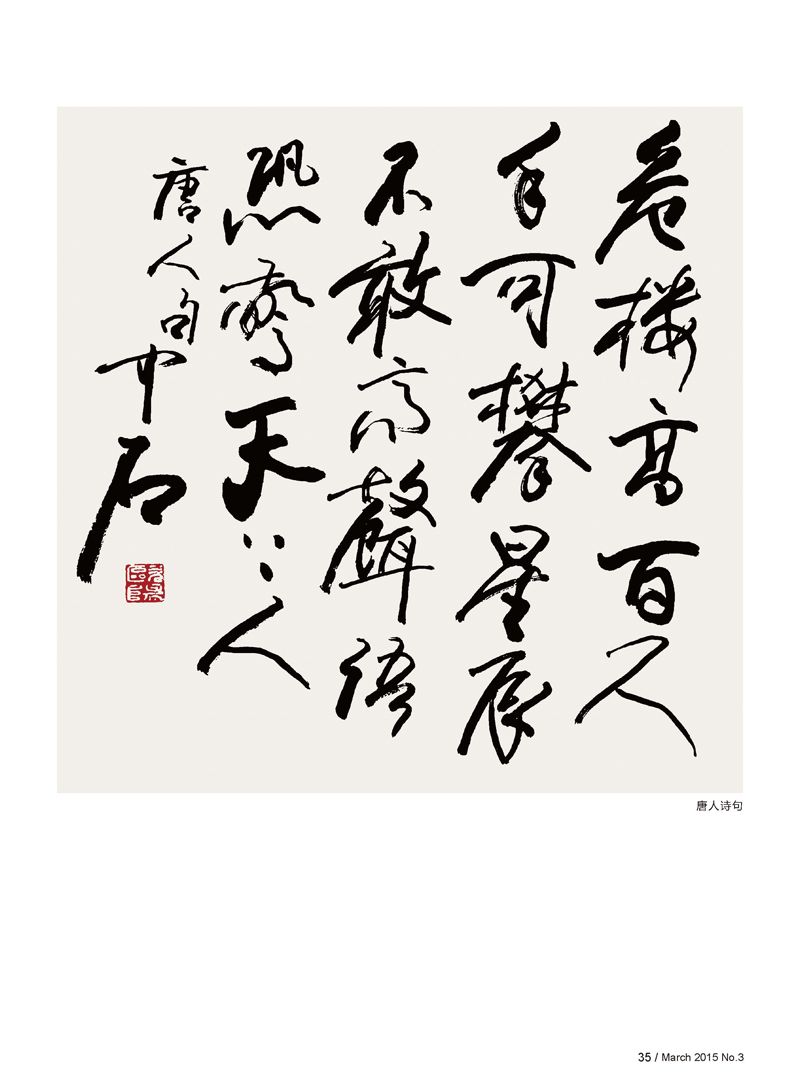 危楼高百尺
手可攀星辰
不敢高聲語
恐驚天上人
唐人句中石
唐人诗句
35 / March 2015 No.3